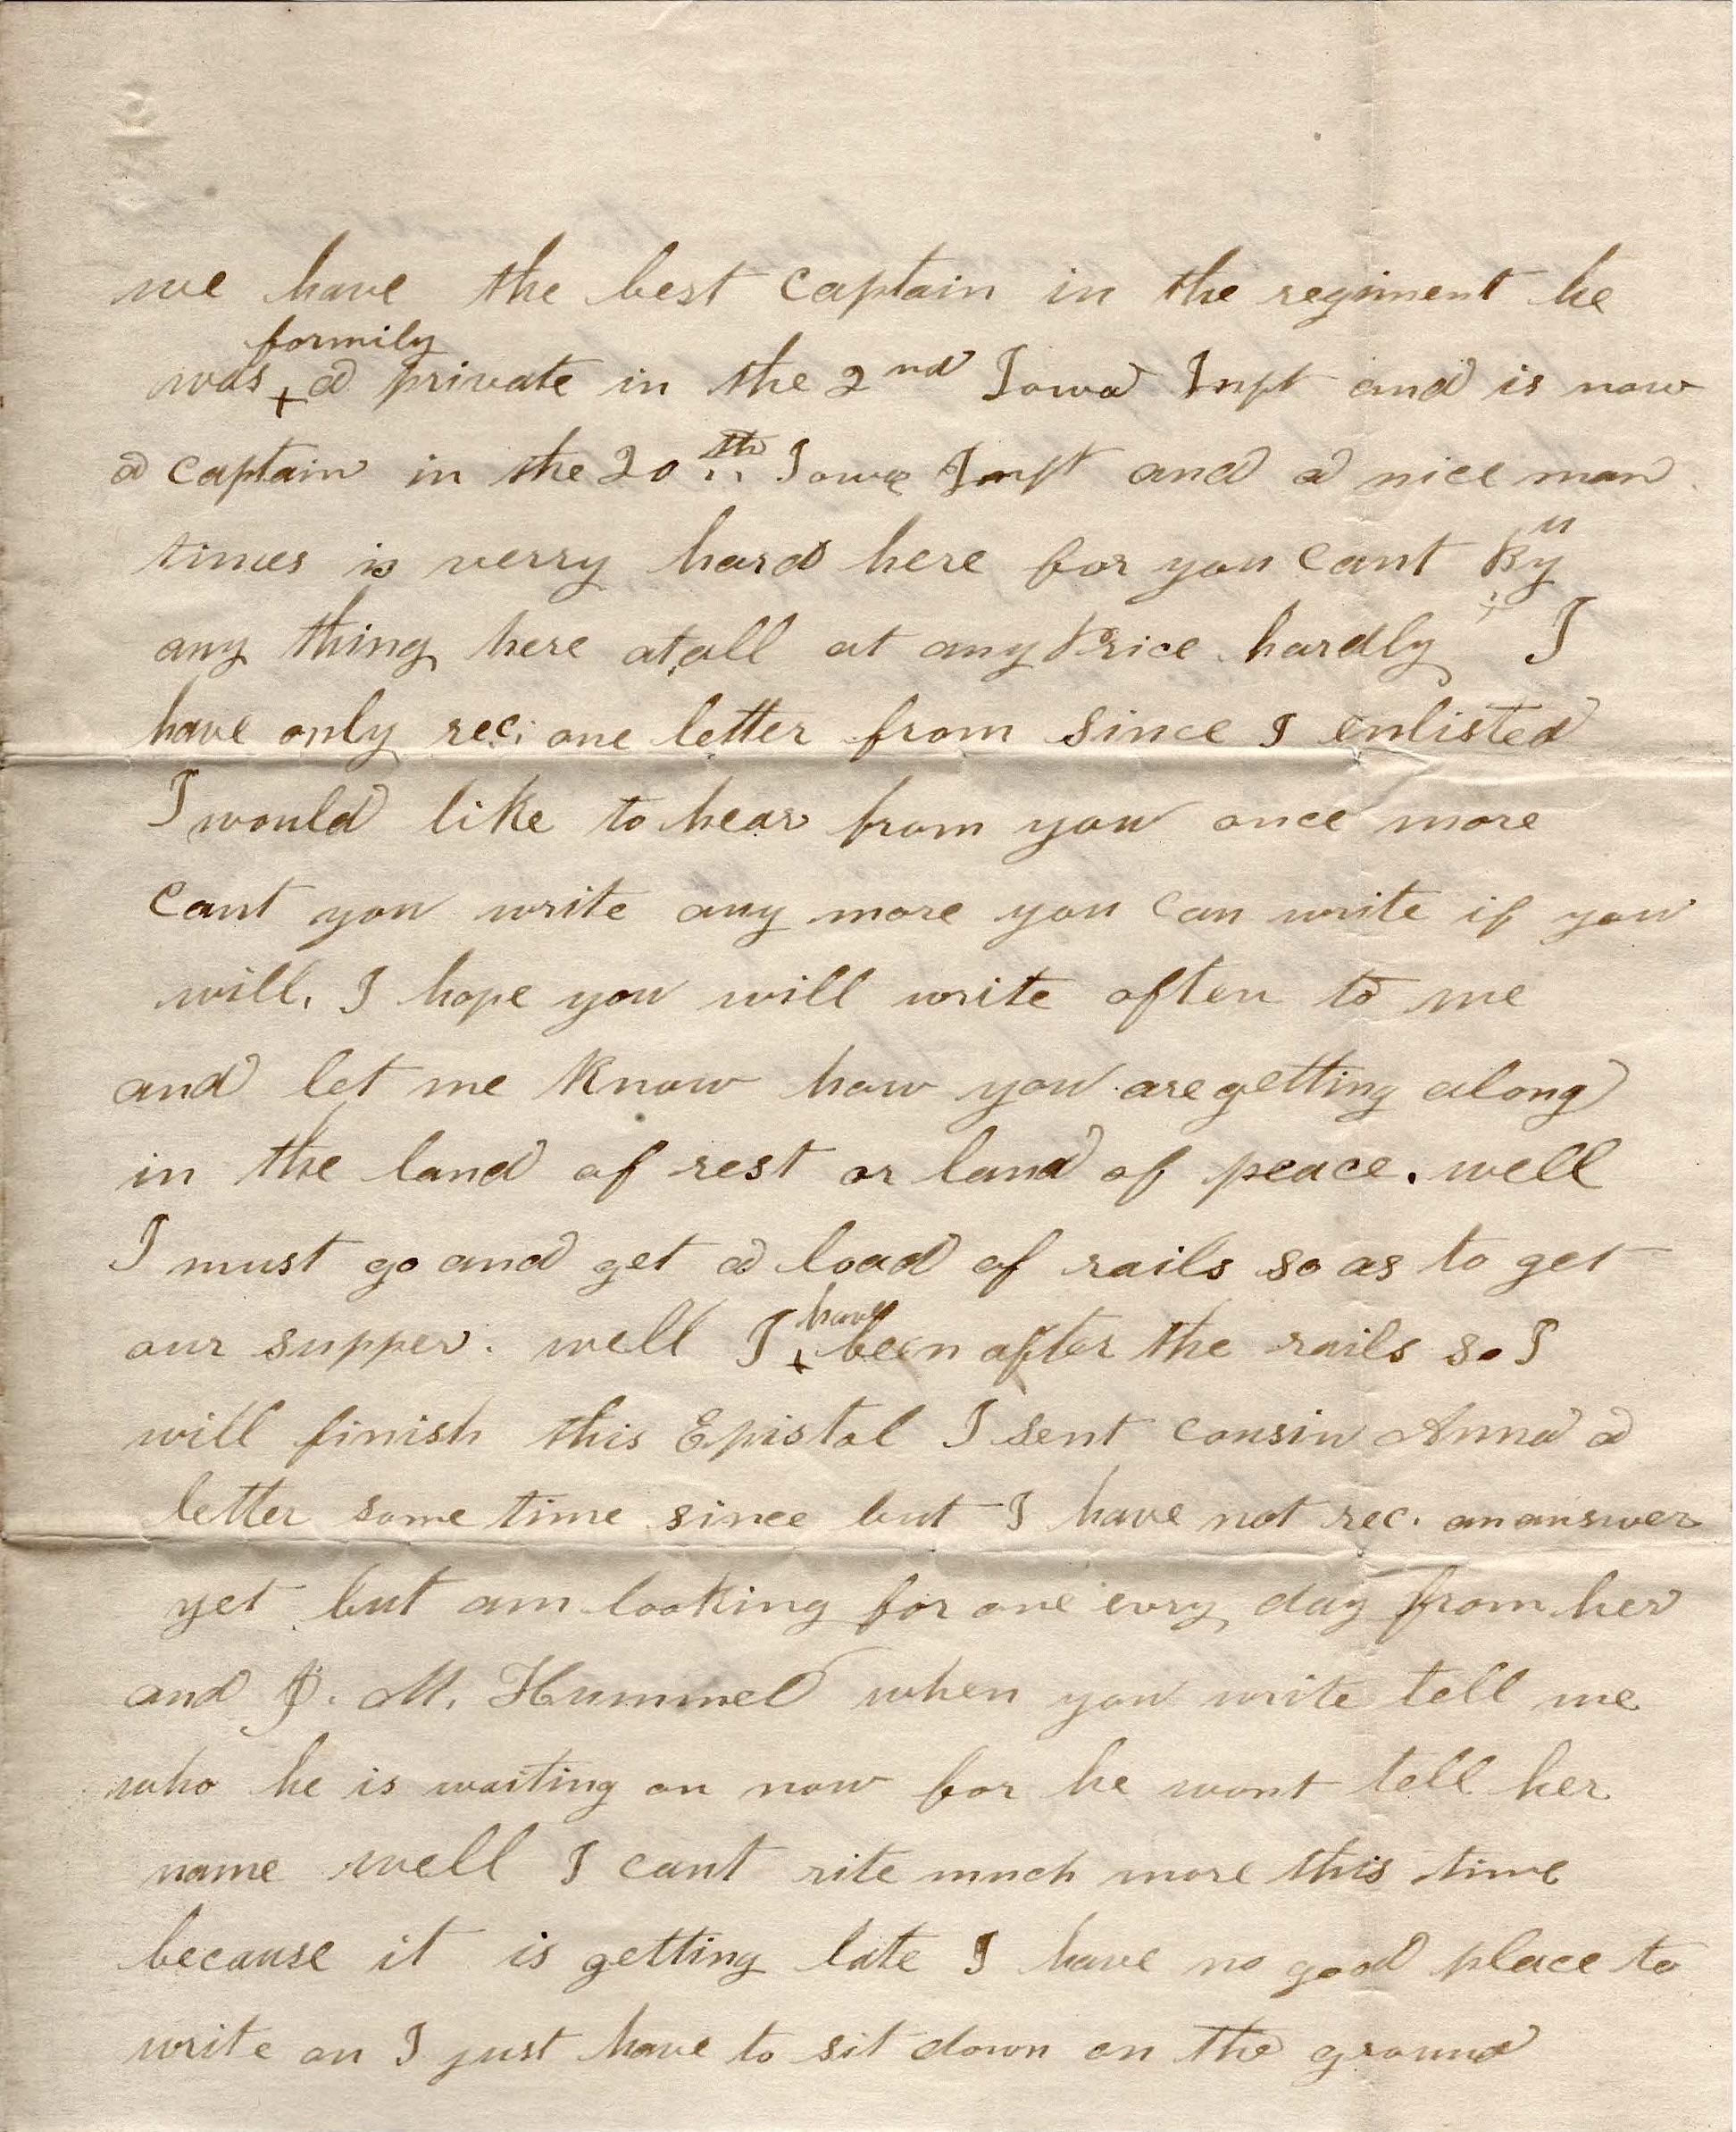 we have the best captain in the regiment he
formily
was + a private in the 2nd Iowa Inft and is now
a captain in the 20th Iowa Inft and a nice man
times is verry hard here for you cant By
u
any thing here atall at any Price hardly I
have only rec. one letter from since I enlisted
I would like to hear from you once more
cant you write any more you can write if you
will. I hope you will write often to me
and let me know how you are getting along
in the land of rest or land of peace. well
I must go and get a load of rails so as to get
our supper. well I + have been after the rails so I
will finish this Epistol I sent cousin Anna a
letter some time since but I have not rec. an answer
yet but am looking for one evry day from her
and J. M. Hummel when you write tell me
who he is waiting on now for he wont tell her
name well I cant rite much more this time
because it is getting late I have no good place to
write on I just have to sit down on the ground